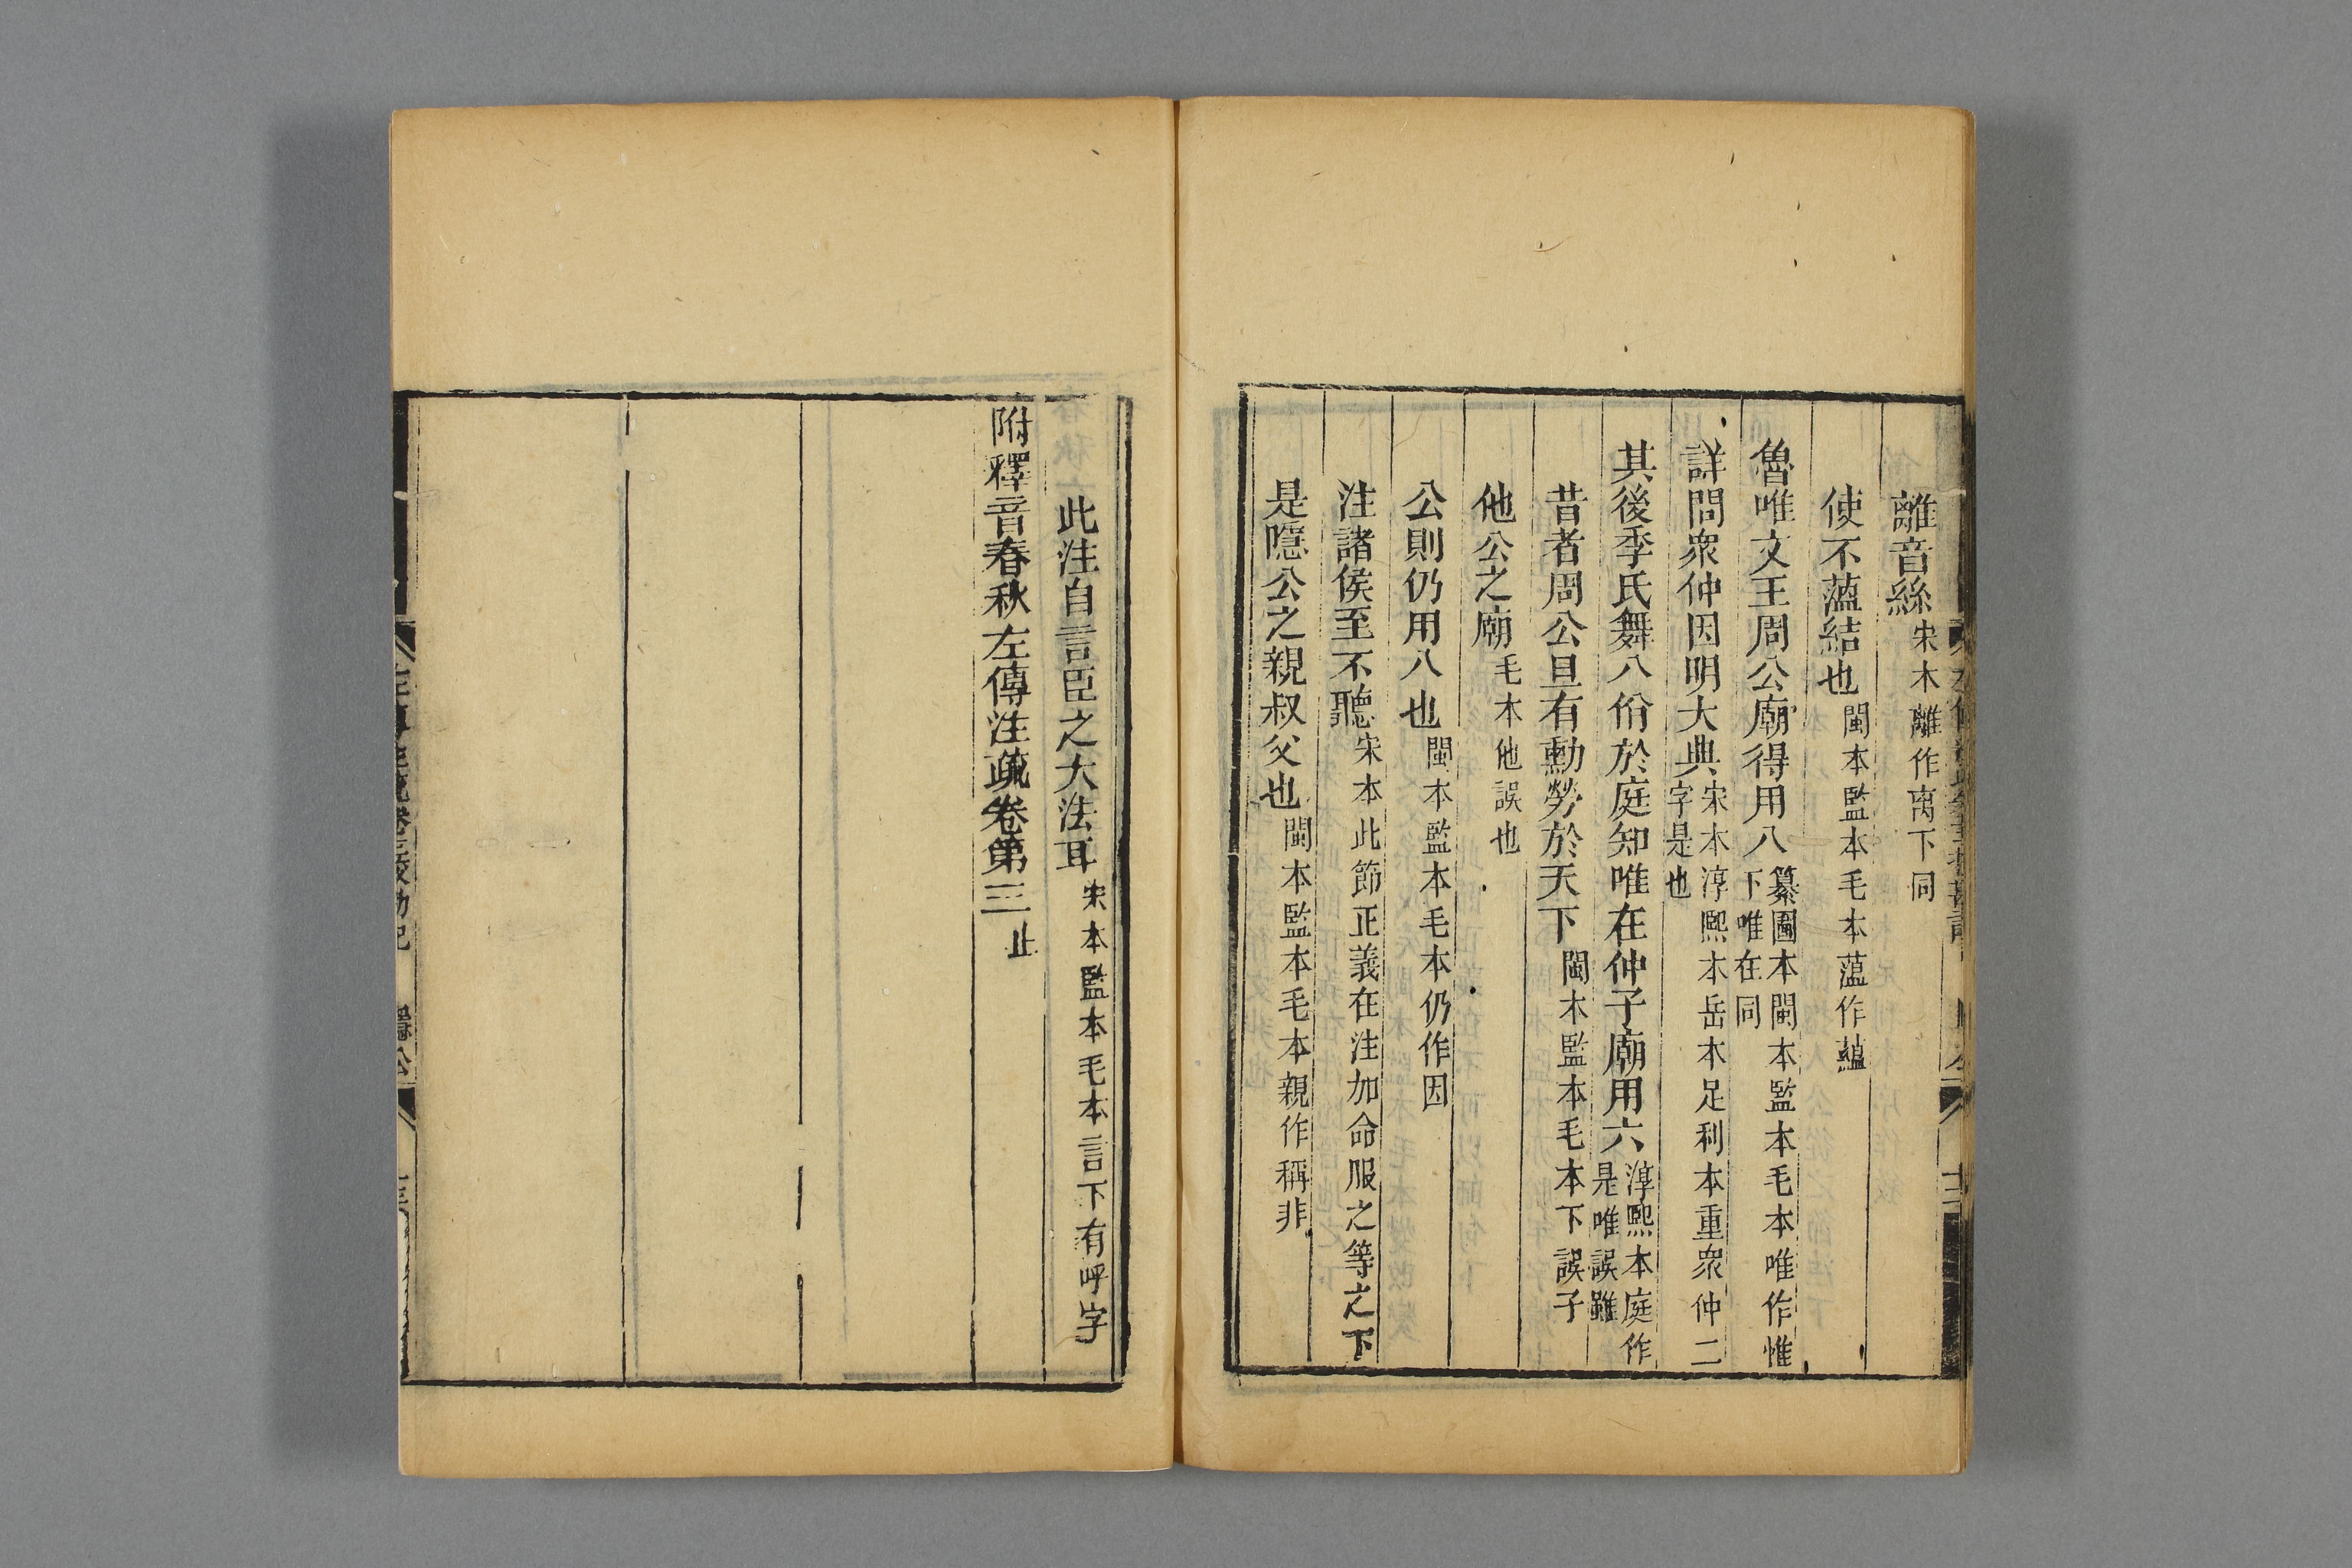 離音絲宋本離作离下同
使不薀結也閩本監本毛本薀作蘊
魯唯文王周公廟得用八纂圖本閩本監本毛本唯作惟下唯在同
詳問衆仲因明大典宋本淳熙本岳本足利本重衆仲二字是也
其後季氏舞八佾於庭知唯在仲子廟用六淳熙本庭作是唯誤雖
昔者周公旦有勳勞於天下閩本監本毛本下誤子
他公之廟毛本他誤也
公則仍用八也閩本監本毛本仍作因
注諸侯至不聽宋本此節正義在注加命服之等之下
是隱公之親叔父也閩本監本毛本親作稱非
此注自言臣之大法耳宋本監本毛本言下有呼字
附釋音春秋左傳注疏卷第三止